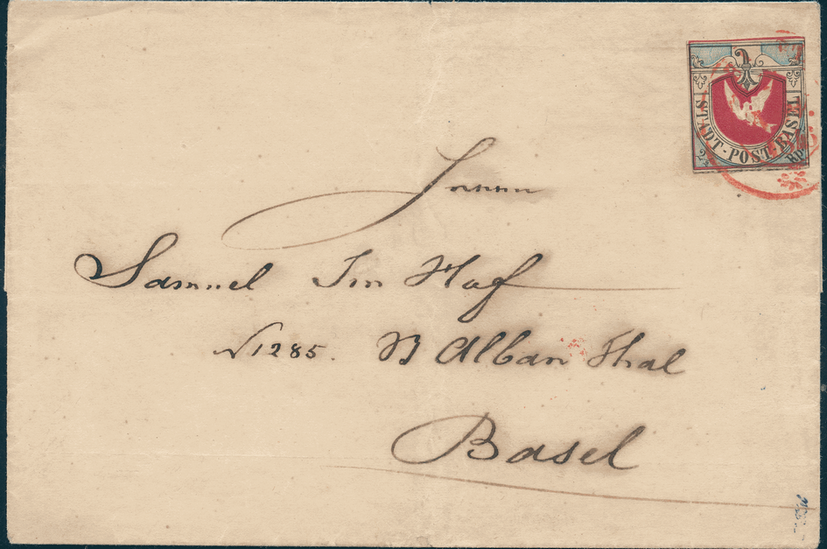 STADT-POST-BASEL
2½ Rp.
Samuel Im Hof
N 1285. St Alban Thal
Basel